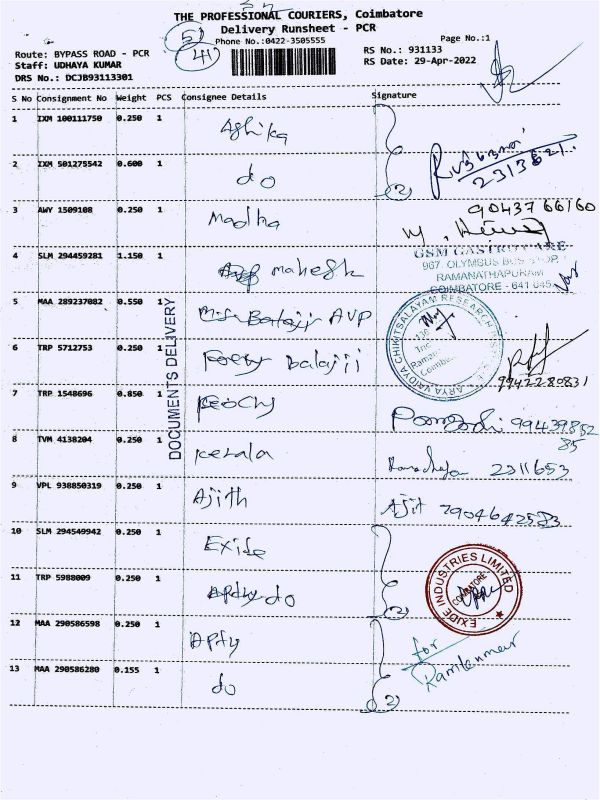 THE PROFESSIONAL COURIERS, Coimbatore
Delivery Runsheet - PCR
Phone No.:0422-3505555
Page No.:1
Route: BYPASS ROAD - PCR
RS No.: 931133
Staff: UDHAYA KUMAR
RS Date: 29-Apr-2022
DRS No.: DCJB93113301
S No Consignment No Weight PCS Consignee Details Signature
1 IXM 100111750 0.250 1 Ashika
2 IXM 501275542 0.600 1 do 2313621
3 AWY 1509108 0.250 1 Madha 9043766160
4 SLM 294459281 1.150 1 mahesh
GSM GASTROCARE
967, OLYMBUS BUS STOP,
RAMANATHAPURAM
COIMBATORE - 641 045
5 MAA 289237082 0.550 1 Balaji AVP
ARYA VAIDYA CHIKITSALAYAM RESEARCH
6 TRP 5712753 0.250 1 Balajii 9942280831
DOCUMENTS DELIVERY
7 TRP 1548696 0.850 1 99439852
85
8 TVM 4138204 0.250 1 Kerala 2311653
9 VPL 938850319 0.250 1 Ajith Ajit 7904642583
10 SLM 294549942 0.250 1 Exide
11 TRP 5988009 0.250 1 do
EXIDE INDUSTRIES LIMITED
COIMBATORE
12 MAA 290586598 0.250 1 Apty
for
Ramkumar
13 MAA 290586280 0.155 1 do